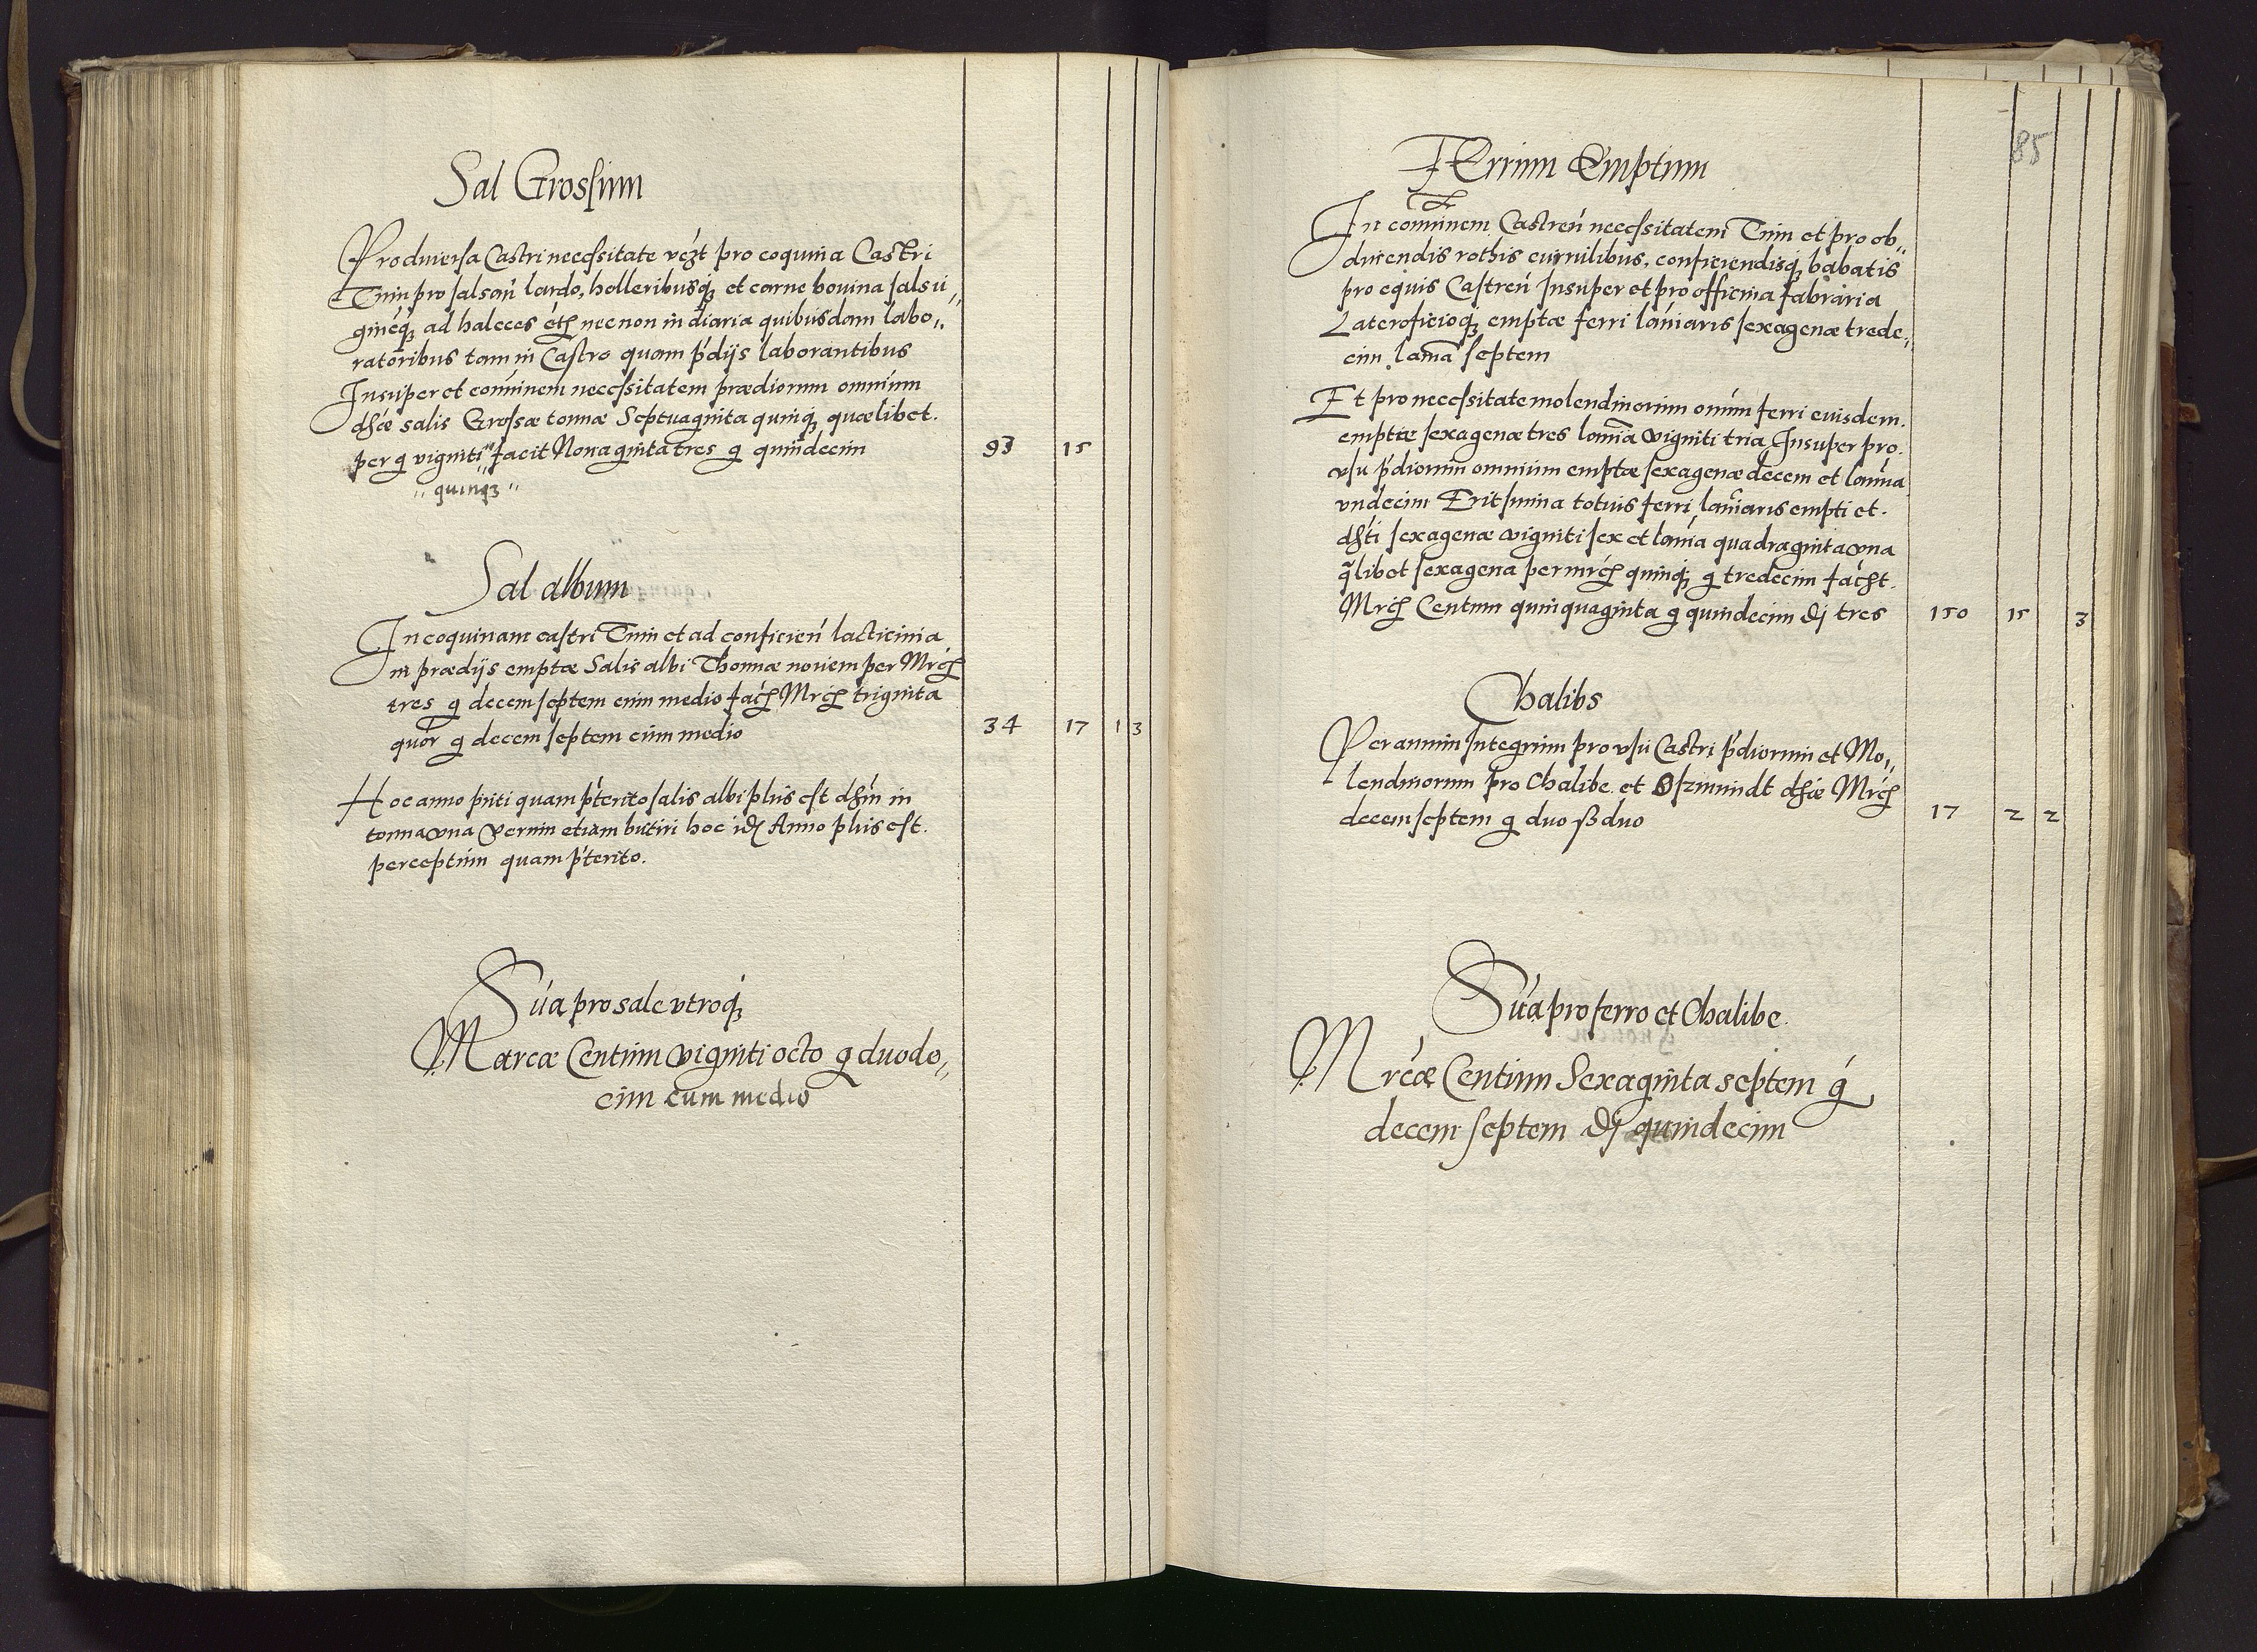 Sal Grossum
Pro diuersa Castri necessitate vczt pro coquina Castri
Tum pro salsan lardo, holleribusq et carne bouina salsu„
gineq, ad haleces etc nec non in diaria quibusdam labo„
ratoribus tam in Castro quam pdijs laborantibus
Insuper et commem necessitatem prædiorum omnium
dhæ salis Grossæ tonnæ Septuaginta quinq, quælibet.
per g viginti facit Nonaginta tres g quindecim 93 15
„ quinqz „
Sal album
In coquinam castri Tum et ad conficien lacticinia
in prædijs emptæ Salis albi Thonnæ nouem per Mrc
tres g decem septem cum medio fac Mrc triginta
quor g decem septem cum medio 34 17 1 3
Hoc anno pnti quam pterito salis albi plus est dhm in
tonna vna Verum etiam butiri hoc id Anno plus est.
perceptum quam pterito.
Sua pro sale vtroq
Marcæ Centum viginti octo g duode„
cim cum medio
85
Ferrum Emptum
In commem Castren necessitatem Tum et pro ob„
ducendis rothis currulibus, conficiendisq babatis
pro equis Castren Insuper et pro officina fabraria
Lateroficioq emptæ ferri laniaris sexagenæ trede„
cim lama septem
Et pro necessitate molendinorum omum ferri euisdem.
emptæ sexagenæ tres lamia viginti tria Insuper pro.
vsu pdiorum omnium emptæ sexagenæ decem et lamia
vndecim Erit suma totius ferri lamiaris empti et.
dhti sexagenæ viginti sex et lamia quadraginta vna
qlibet sexagena per mrc quinq g tredecim facht.
Mrc Centum quinquaginta g quindecim d tres 150 15 3
Chalibs
Per annum Integrum pro vsu Castri pdiorum et Mo„
lendinorum pro Chalibe et Oszmundt dhæ Mrc
decem septem g duo ß duo 17 2 2
Sua pro ferro et Chalibe.
Mrcæ Centum Sexaginta septem g
decem septem d quindecim